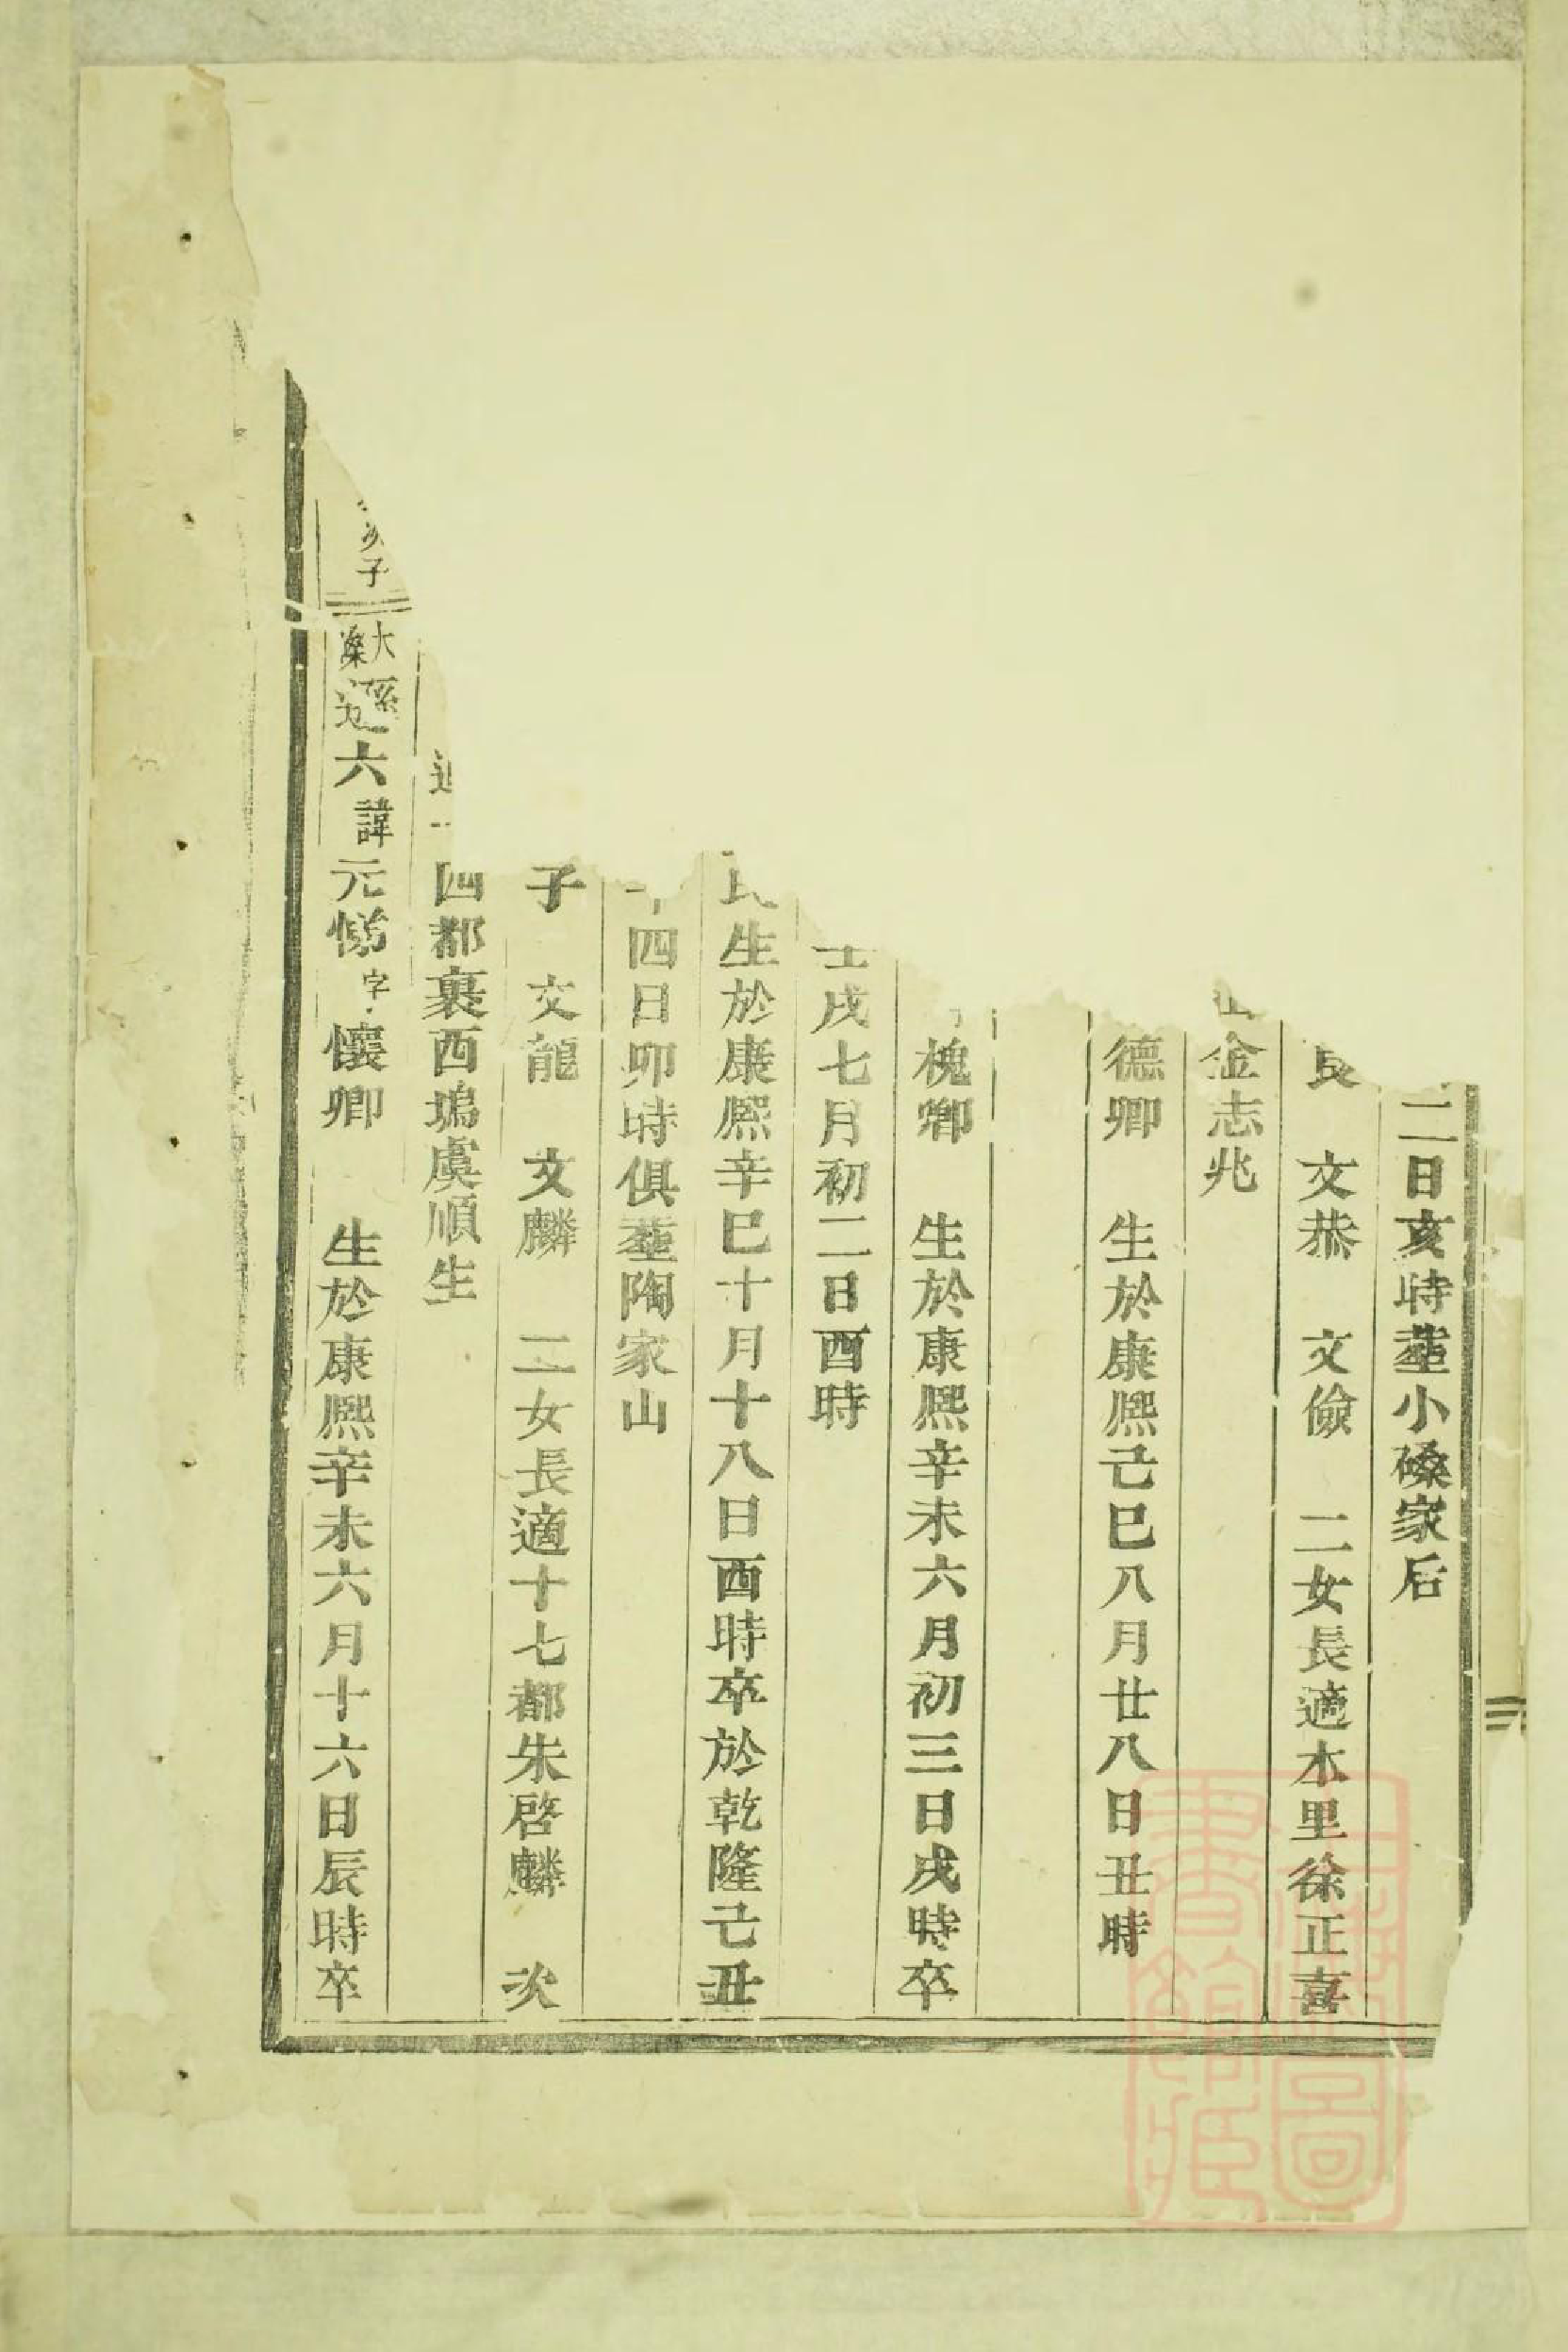 二日亥時塟小磉家后
文恭 文儉 二女長適本里徐正喜
金志兆
德卿 生於康熙己巳八月廿八日丑時
槐卿 生於康熙辛未六月初三日戌時卒
壬戌七月初二日酉時
氏生於康熙辛巳十月十八日酉時卒於乾隆己丑
四日卯時俱塟陶家山
子 文龍 文麟 二女長適十七都朱啓麟 次
適 四都裏西塢虞順生
子 大 孫 六諱元悌字懷卿 生於康熙辛未六月十六日辰時卒